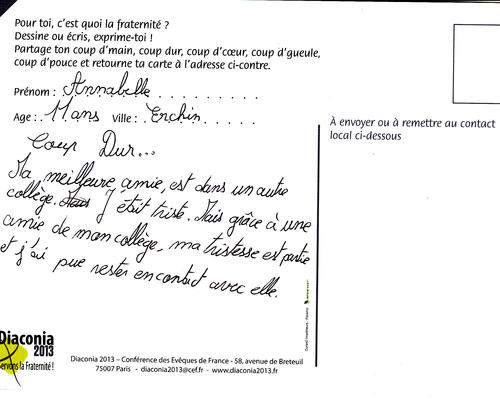 Pour toi, c'est quoi la fraternité ?
Dessine ou écris, exprime-toi !
Partage ton coup d'main, coup dur, coup d'cœur, coup d'gueule,
coup d'pouce et retourne ta carte à l'adresse ci-contre.
Prénom : Annabelle
Age : 11ans Ville : Enchin
À envoyer ou à remettre au contact
local ci-dessous
Coup Dur...
Ma meilleure amie, est dans un autre
collège. J'était triste. Mais grâce à une
amie de mon collège, ma tristesse est partie
et j'ai pue rester en contact avec elle.
Diaconia
2013
Servons la Fraternité !
Diaconia 2013 – Conférence des Evêques de France - 58, avenue de Breteuil
75007 Paris - diaconia2013@cef.fr - www.diaconia2013.fr